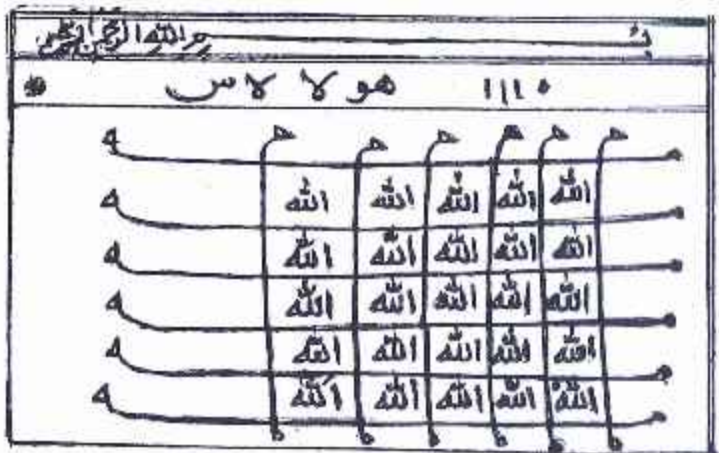 بسم الله الرحمن الرحيم
١١١٠ هو لا لا س
الله الله الله الله الله
الله الله الله الله الله
الله الله الله الله الله
الله الله الله الله الله
الله الله الله الله الله